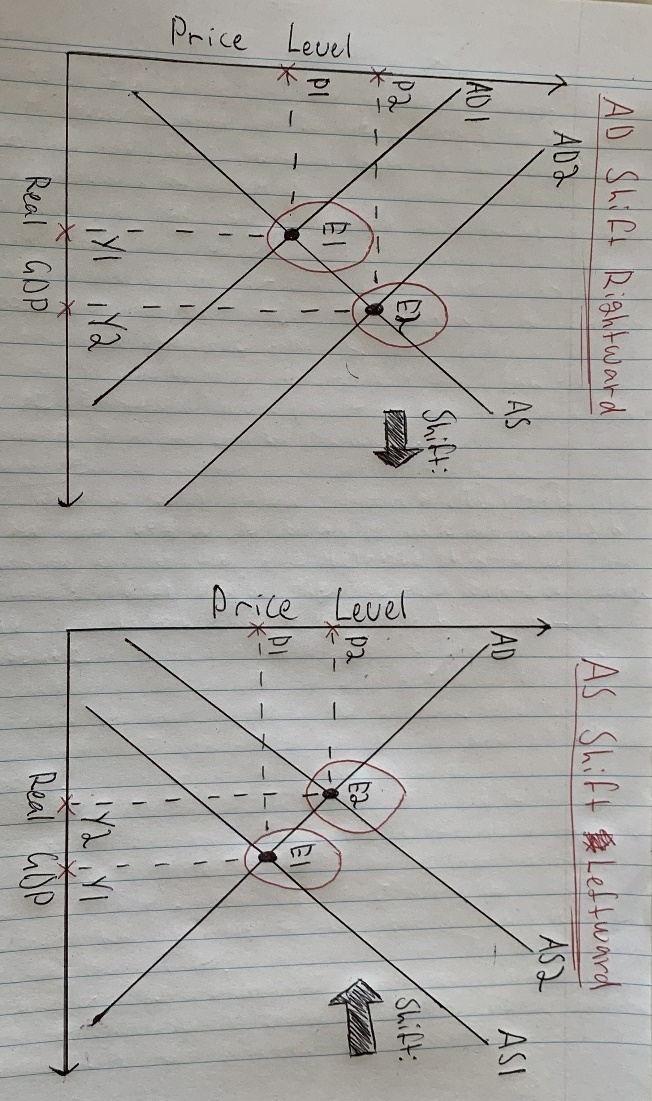 AD Shift Rightward
Price Level
AD1
AD2
P2
P1
E1
E2
AS
Shift:
Y1
Y2
Real GDP
AS Shift Leftward
Price Level
AD
P2
P1
E2
E1
AS2
AS1
Shift:
Y2
Y1
Real GDP